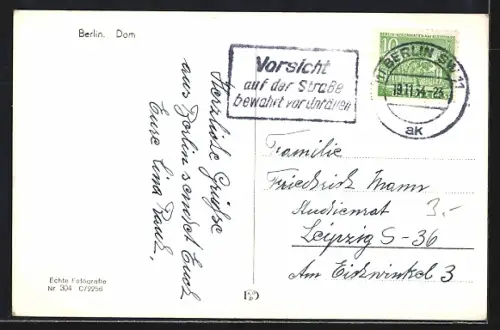 Berlin. Dom
Vorsicht
auf der Straße
bewahrt vor Unfällen
10
(1) BERLIN SW 11
19.11.54.-23
ak
Herzliche Grüsse
aus Berlin sendet Euch
Eure Lina Rauh.
Familie
Friedrich Mann
Studienrat
3.-
Leipzig S-36
Am Eichwinkel 3
Echte Fotografie
Nr 304 C/2256